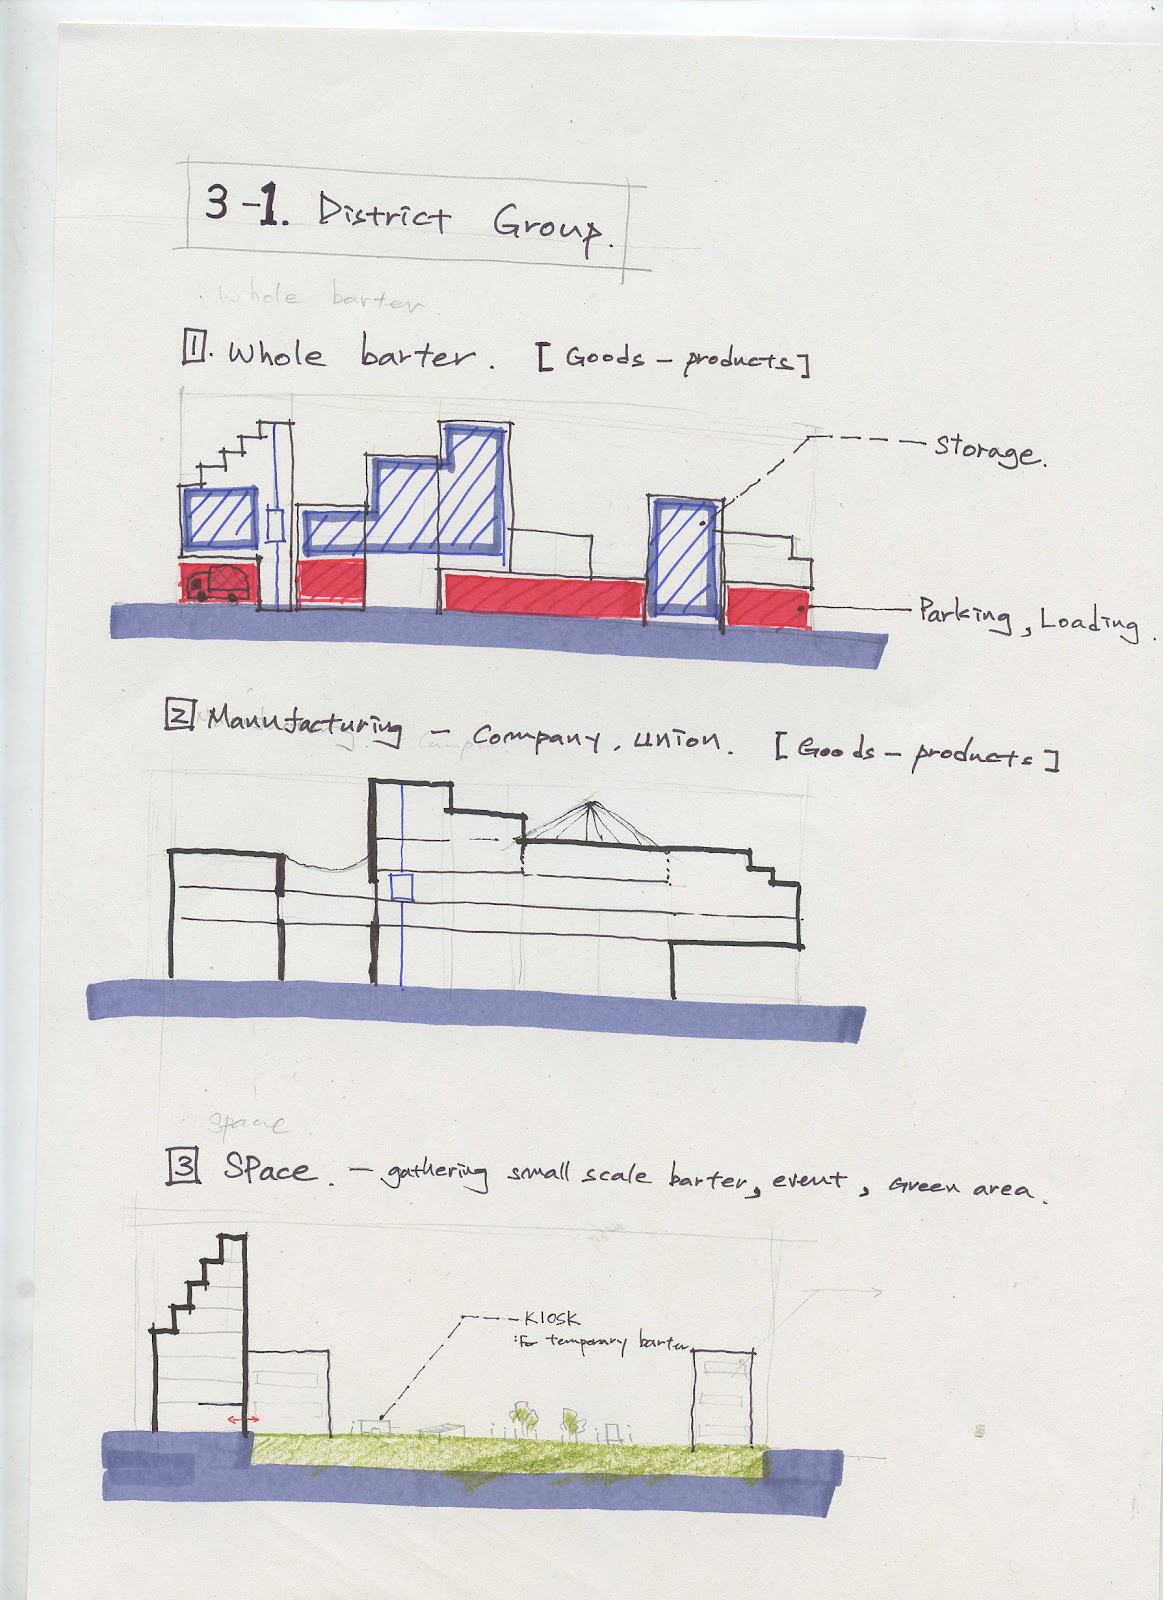 3-1. District Group.
whole barter.
1. Whole barter. [Goods - products]
Storage.
Parking, Loading.
2 Manufacturing - Company, union. [Goods - products]
Space.
3 Space. - gathering small scale barter, event, Green area.
KIOSK
:For temporary barter